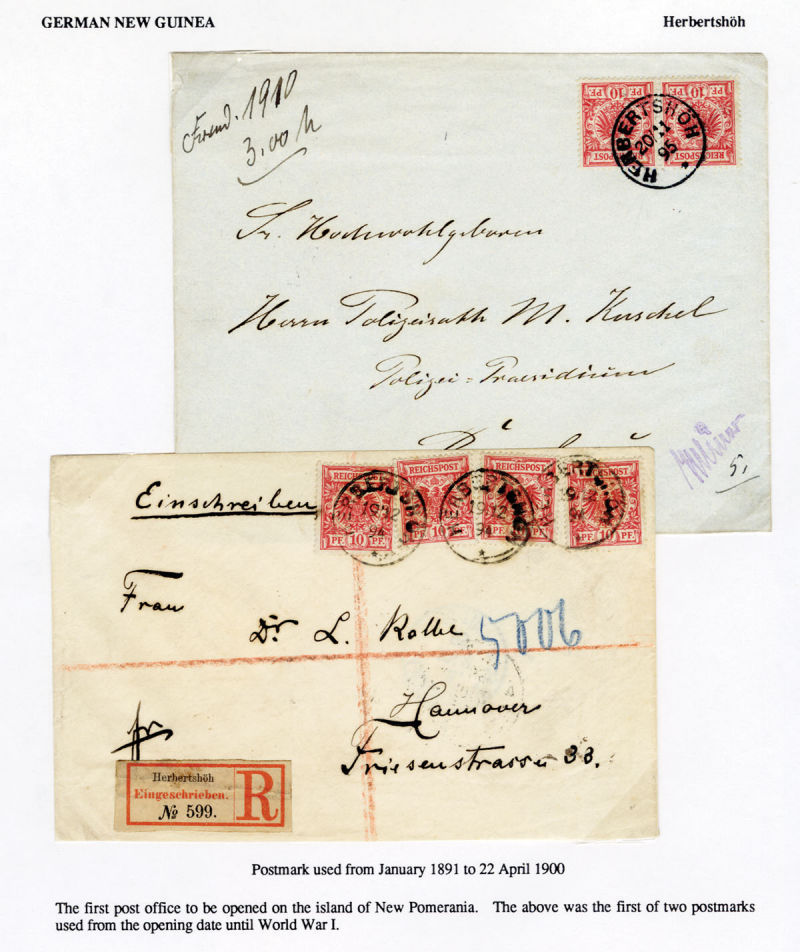 GERMAN NEW GUINEA
Herbertshöh
1910
3.00 M
10 PF. 10 PF.
REICHSPOST
HERBERTSHÖH
95
*
Sr. Hochwohlgeboren
Herrn Polizeirath M. Kuschel
Polizei-Praesidium
5.
Einschreiben
REICHSPOST
10 PF. 10 PF. 10 PF. 10 PF.
94
94
Frau
Dr. L. Kolbe
5006
Hannover
fr
Friesenstrasse 33.
Herbertshöh
Eingeschrieben.
R
No 599.
Postmark used from January 1891 to 22 April 1900
The first post office to be opened on the island of New Pomerania. The above was the first of two postmarks
used from the opening date until World War I.